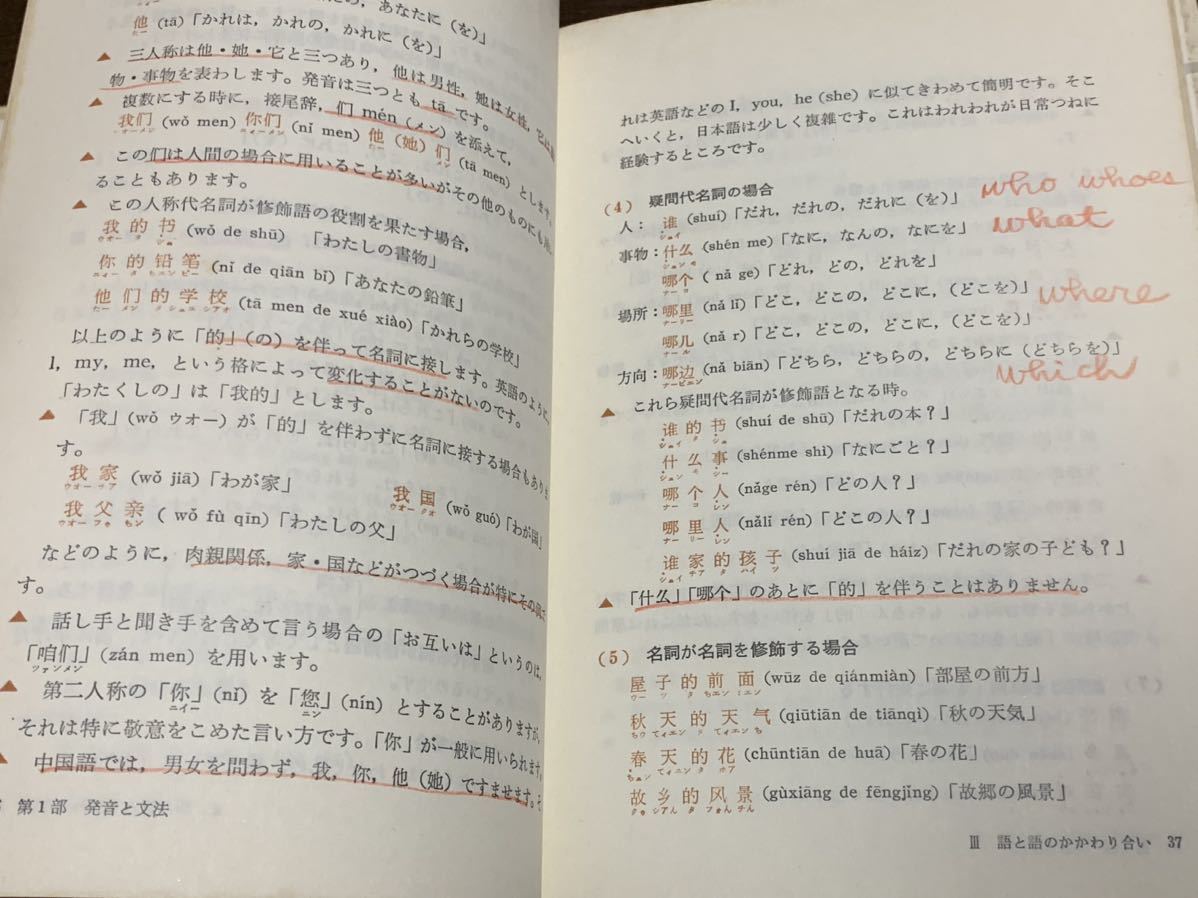 の，あなたに（を）」
他 (tā)「かれは，かれの，かれに（を）」
たー
▲ 三人称は他・她・它と三つあり，他は男性，她は女性，它は
物・事物を表わします。発音は三つとも tā です。
▲ 複数にする時に，接尾辞，们 mén（メン）を添えて，
我们 (wǒ men) 你们 (nǐ men) 他（她）们 (tā men) とします。
ウオーメン ニィーメン たー メン
▲ この们は人間の場合に用いることが多いがその他のものにも
ることもあります。
▲ この人称代名詞が修飾語の役割を果たす場合，
我的书 (wǒ de shū) 「わたしの書物」
ウオー タ シュ
你的铅笔 (nǐ de qiān bǐ)「あなたの鉛筆」
ニィー タ ちエンピー
他们的学校 (tā men de xué xiào)「かれらの学校」
たー メン タ シュエ シアオ
以上のように「的」（の）を伴って名詞に接します。英語のように，
I, my, me, という格によって変化することがないのです。
「わたくしの」は「我的」とします。
▲ 「我」(wǒ ウオー) が「的」を伴わずに名詞に接する場合もありま
す。
我家 (wǒ jiā)「わが家」 我国 (wǒ guó)「わが国」
ウオーチア ウオー クオ
我父亲 ( wǒ fù qīn)「わたしの父」
ウオー フゥ ちン
などのように，肉親関係，家・国などがつづく場合が特にその
す。
▲ 話し手と聞き手を含めて言う場合の「お互いは」というのは，
「咱们」(zán men) を用います。
ツァンメン
▲ 第二人称の「你」(nǐ) を「您」(nín) とすることがありますが，
ニイー ニン
それは特に敬意をこめた言い方です。「你」が一般に用いられます。
▲ 中国語では，男女を問わず，我，你，他（她）ですませます。そ
第1部 発音と文法
れは英語などの I, you, he (she) に似てきわめて簡明です。そこ
へいくと，日本語は少しく複雑です。これはわれわれが日常つねに
経験するところです。
(4) 疑問代名詞の場合 who whoes
人：谁 (shuí)「だれ，だれの，だれに（を）」 what
シュイ
事物：什么 (shén me)「なに，なんの，なにを」
シェンモ
哪个 ( nǎ ge)「どれ，どの，どれを」
ナー コ
場所：哪里 (nǎ lǐ)「どこ，どこの，どこに，（どこを）」 where
ナーリー
哪儿 (nǎ r)「どこ，どこの，どこに，（どこを）」
ナール
方向：哪边 (nǎ biān)「どちら，どちらの，どちらに（どちらを）」 which
ナーピエン
▲ これら疑問代名詞が修飾語となる時。
谁的书 (shuí de shū)「だれの本？」
シュイ タ シュ
什么事 (shénme shì)「なにごと？」
シェン モ シー
哪个人 (nǎge rén)「どの人？」
ナー コ レン
哪里人 (nǎlǐ rén)「どこの人？」
ナー リー レン
谁家的孩子 (shuí jiā de háiz)「だれの家の子ども？」
シュイ チア タ ハイ ツ
▲ 「什么」「哪个」のあとに「的」を伴うことはありません。
(5) 名詞が名詞を修飾する場合
屋子的前面 (wūz de qiánmiàn)「部屋の前方」
ウー ツ タ ちエン ミエン
秋天的天气 (qiūtiān de tiānqì)「秋の天気」
ちウ てィエン タ てィエン ち
春天的花 (chūntiān de huā)「春の花」
ちュン てィエン タ ホア
故乡的风景 (gùxiāng de fēngjǐng)「故郷の風景」
クゥ シアん タ フォん チん
Ⅲ 語と語のかかわり合い 37